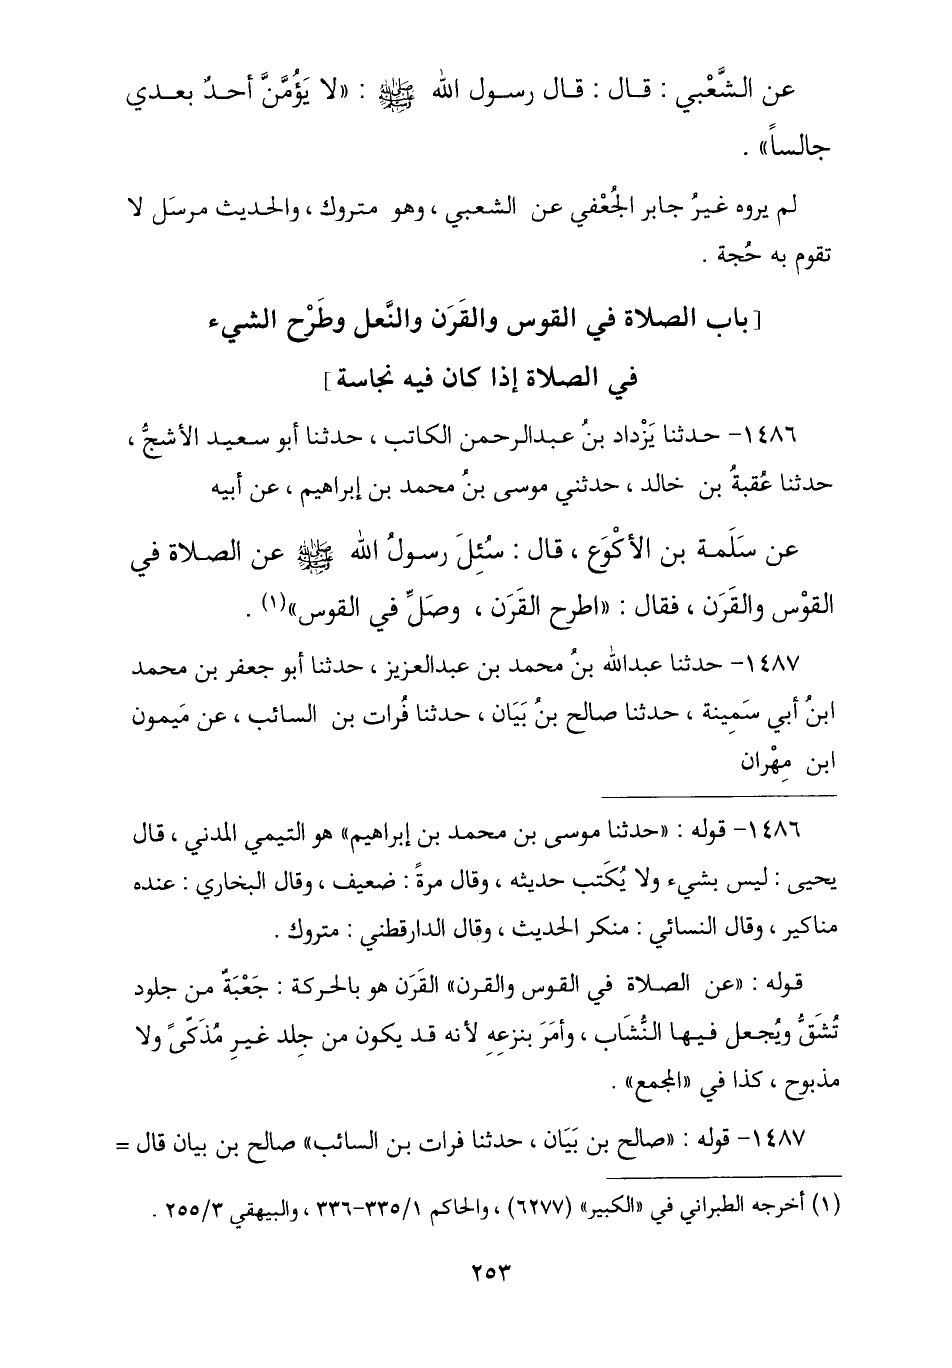 عن الشَّعْبي : قال : قال رسول الله ﷺ : «لا يَؤُمَّنَّ أحدٌ بعدي
جالساً» .
لم يروه غيرُ جابر الجُعْفي عن الشعبي ، وهو متروك ، والحديث مرسَل لا
تقوم به حُجة .
[باب الصلاة في القوس والقَرَن والنَّعل وطَرْح الشيء
في الصلاة إذا كان فيه نجاسة]
١٤٨٦- حدثنا يَزْداد بنُ عبدالرحمن الكاتب ، حدثنا أبو سعيد الأشجُّ ،
حدثنا عُقبةُ بن خالد ، حدثني موسى بنُ محمد بن إبراهيم ، عن أبيه
عن سَلَمة بن الأكْوَع ، قال : سُئِلَ رسولُ الله ﷺ عن الصلاة في
القوْس والقَرَن ، فقال : «اطرح القَرَن ، وصَلِّ في القوس»(١) .
١٤٨٧- حدثنا عبدالله بنُ محمد بن عبدالعزيز ، حدثنا أبو جعفر بن محمد
ابنُ أبي سَمِينة ، حدثنا صالح بنُ بَيَان ، حدثنا فُرات بن السائب ، عن مَيمون
ابن مِهْران
١٤٨٦- قوله : «حدثنا موسى بن محمد بن إبراهيم» هو التيمي المدني ، قال
يحيى : ليس بشيء ولا يُكتَب حديثه ، وقال مرةً : ضعيف ، وقال البخاري : عنده
مناكير ، وقال النسائي : منكر الحديث ، وقال الدارقطني : متروك .
قوله : «عن الصلاة في القوس والقرن» القَرَن هو بالحركة : جَعْبَةٌ من جلود
تُشَقُّ ويُجعل فيها النُّشَاب ، وأمَرَ بنزعِهِ لأنه قد يكون من جِلد غيرِ مُذَكّىً ولا
مذبوح ، كذا في «المجمع» .
١٤٨٧- قوله : «صالح بن بَيَان ، حدثنا فرات بن السائب» صالح بن بيان قال =
(١) أخرجه الطبراني في «الكبير» (٦٢٧٧) ، والحاكم ١/ ٣٣٥-٣٣٦ ، والبيهقي ٣/ ٢٥٥ .
٢٥٣